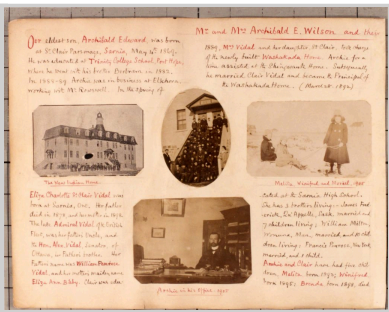 Our eldest son, Archibald Edward, was born
at St. Clair Parsonage, Sarnia, May 4th 1869.
He was educated at Trinity College School, Port Hope,
where he went with his brother
in 1882.
In 1888-89 Archie was in business at Elkhorn,
working with Mr. Rowswell. In the spring of
Mr and Mrs Archibald E. Wilson and their
1889, Mrs Vidal and her daughter St. Clair, took charge
of the newly built Washakada Home. Archie for a
time assisted at the Shingwauk Home. Subsequently,
he married Clair Vidal and became the Principal of
the Washakada Home. (March 1892)
The Elkhorn Indian Homes.
Melita, Winifred and Muriel. 1900
Eliza Charlotte St Clair Vidal was
born at Sarnia, Ont. Her father
died in 1872, and her mother in 1892.
The late Admiral Vidal, of the British
Fleet, was her father's Uncle, and
the Hon. Alex. Vidal, Senator, of
Ottawa, is Father's brother. Her
Father's name was William Penrose
Vidal, and her mother's maiden name
Eliza Ann Bibby. Clair was edu-
Archie in his Office. 1900
cated at the Sarnia High School.
She has 3 brothers living; Charles
married and
7 children living; William Melton,
Winona, Man., married, and
children living; Francis Pearson, New York,
married, and 1 child.
Archie and Clair have had five chil-
dren, Melita, born 1893; Winifred,
born 1895; Brenda born 1898, died